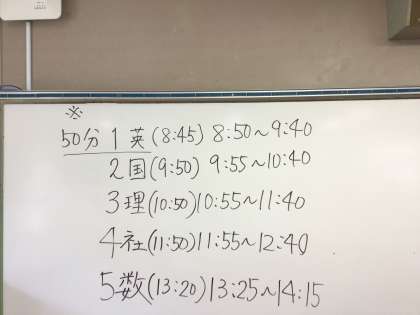 ※
50分 1 英(8:45) 8:50~9:40
2 国(9:50) 9:55~10:40
3 理(10:50) 10:55~11:40
4 社(11:50) 11:55~12:40
5 数(13:20) 13:25~14:15